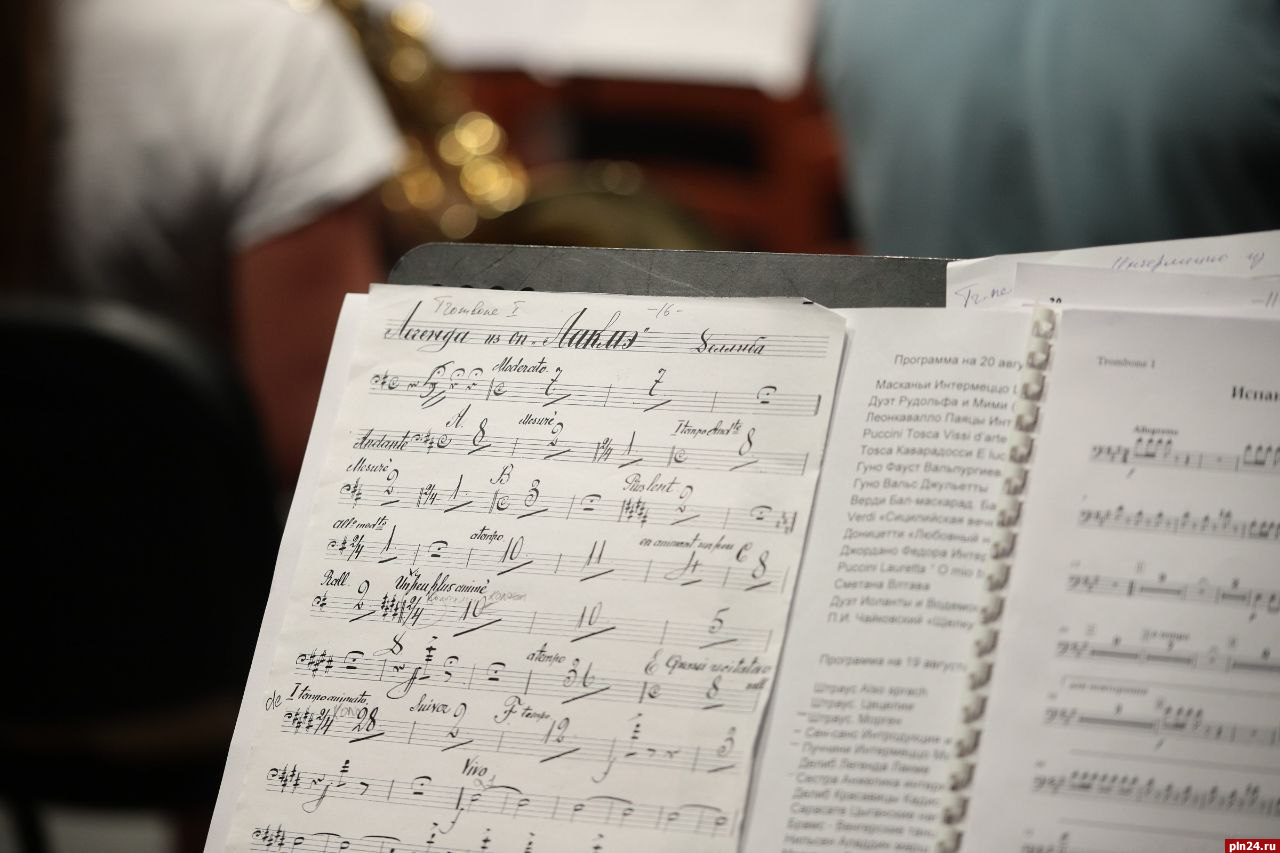 Trombone I -16-
Легенда из оп. "Лакмэ" Делиба
Moderato.
7 7
A. Mesuré I tempo And.te
Andante 8 2 2/4 1 8
Mesuré B Plus lent
2 2/4 1 3 2
all.o mod.to atempo en animant un peu C
2/4 1 10 11 8
Rall Un peu plus animé
2 2/4 10 10 5
atempo E Quasi recitativo
36 8
de I tempo animato Suivez F tempo
2/4 28 2 12 3
Vivo
Интермеццо из
20
Программа на 20 авгу
Масканьи Интермеццо
Дуэт Рудольфа и Мими
Леонкавалло Паяцы Инт
Puccini Tosca Vissi d'arte
Тоска Каварадосси E luc
Гуно Фауст Вальпургиев
Гуно Вальс Джульетты
Верди Бал-маскарад. Ба
Verdi «Сицилийская вече
Доницетти «Любовный н
Джордано Федора Интер
Puccini Lauretta " O mio b
Сметана Влтава
Дуэт Иоланты и Водемо
П.И. Чайковский «Щелку
Программа на 19 август
Штраус Also sprach
Штраус. Цецилия
Штраус. Морген
Сен-санс Интродукция и
Пуччини Интермеццо Ма
Делиб Легенда Лакме
Сестра Анжелика интер
Делиб Красавицы Кадис
Сарасате Цыганские на
Брамс - Венгерские тан
Нильсен Аладдин марш
Trombone 1
Испан
Allegretto
a tempo
pln24.ru